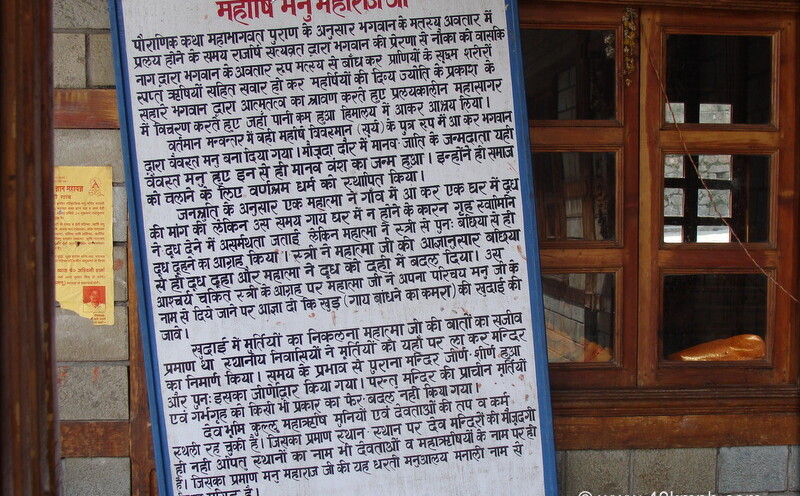 महर्षि मनु महाराज जी
पौराणिक कथा महाभागवत पुराण के अनुसार भगवान के मतस्य अवतार में
प्रलय होने के समय राजर्षि सत्यव्रत द्वारा भगवान की प्रेरणा से नौका को वासकि
नाग द्वारा भगवान के अवतार रूप मत्स्य से बाँध कर प्राणियों के सुक्ष्म शरीरों
सप्त ऋषियों सहित सवार हो कर महर्षियों की दिव्य ज्योति के प्रकाश के
सहारे भगवान द्वारा आत्मतत्व का श्रावण करते हुए प्रलयकालीन महासागर
में विचरण करते हुए जहाँ पानी कम हुआ हिमालय में आकर आश्रय लिया।
वर्तमान मन्वन्तर में वही महर्षि विवस्मान (सुर्य) के पुत्र रूप में आ कर भगवान
द्वारा वैवस्त मनु बना दिया गया। मौजूदा दौर में मानव जाति के जन्मदाता यही
वैवस्त मनु हुए इन से ही मानव वंश का जन्म हुआ। इन्होंने ही समाज
को चलाने के लिए वर्णश्रम धर्म को स्थापित किया।
जनश्रुति के अनुसार एक महात्मा ने गाँव में आ कर एक घर में दुध
की मांग की लेकिन उस समय गाय घर में न होने के कारन गृह स्वामिनि
ने दुध देने में असमर्थता जताई लेकिन महात्मा ने स्त्री से पुनः बछिया से ही
दुध दुहने का आग्रह किया। स्त्री ने महात्मा जी की आज्ञानुसार बछिया
से ही दुध दुहा और महात्मा ने दुध को दही में बदल दिया। उस
आश्चर्य चकित स्त्री के आग्रह पर महात्मा जी ने अपना परिचय मनु जी के
नाम से दिये जाने पर आज्ञा दी कि खुड़ (गाय बाँधने का कमरा) की खुदाई की
जावे।
खुदाई में मुर्तियों का निकलना महात्मा जी की बातों का सजीव
प्रमाण था स्थानीय निवासियों ने मुर्तियों को यहाँ पर ला कर मन्दिर
का निर्माण किया। समय के प्रभाव से पुराना मन्दिर जीर्ण-शीर्ण हुआ
और पुनः इसका जीर्णोद्वार किया गया। परन्तु मन्दिर की प्राचीन मुर्तियों
एवं गर्भगृह को किसी भी प्रकार का फेर-बदल नहीं किया गया।
देव भूमि कुल्लू महाऋषि मुनियों एवं देवताओं की तप व कर्म
स्थली रह चुकी है। जिसका प्रमाण स्थान-स्थान पर देव मन्दिरों की मौजूदगी
ही नहीं अपितु स्थानों का नाम भी देवताओं व महाऋषीयों के नाम पर ही
है। जिसका प्रमाण मनु महाराज जी की यह धरती मनुआलय मनाली नाम से
है।